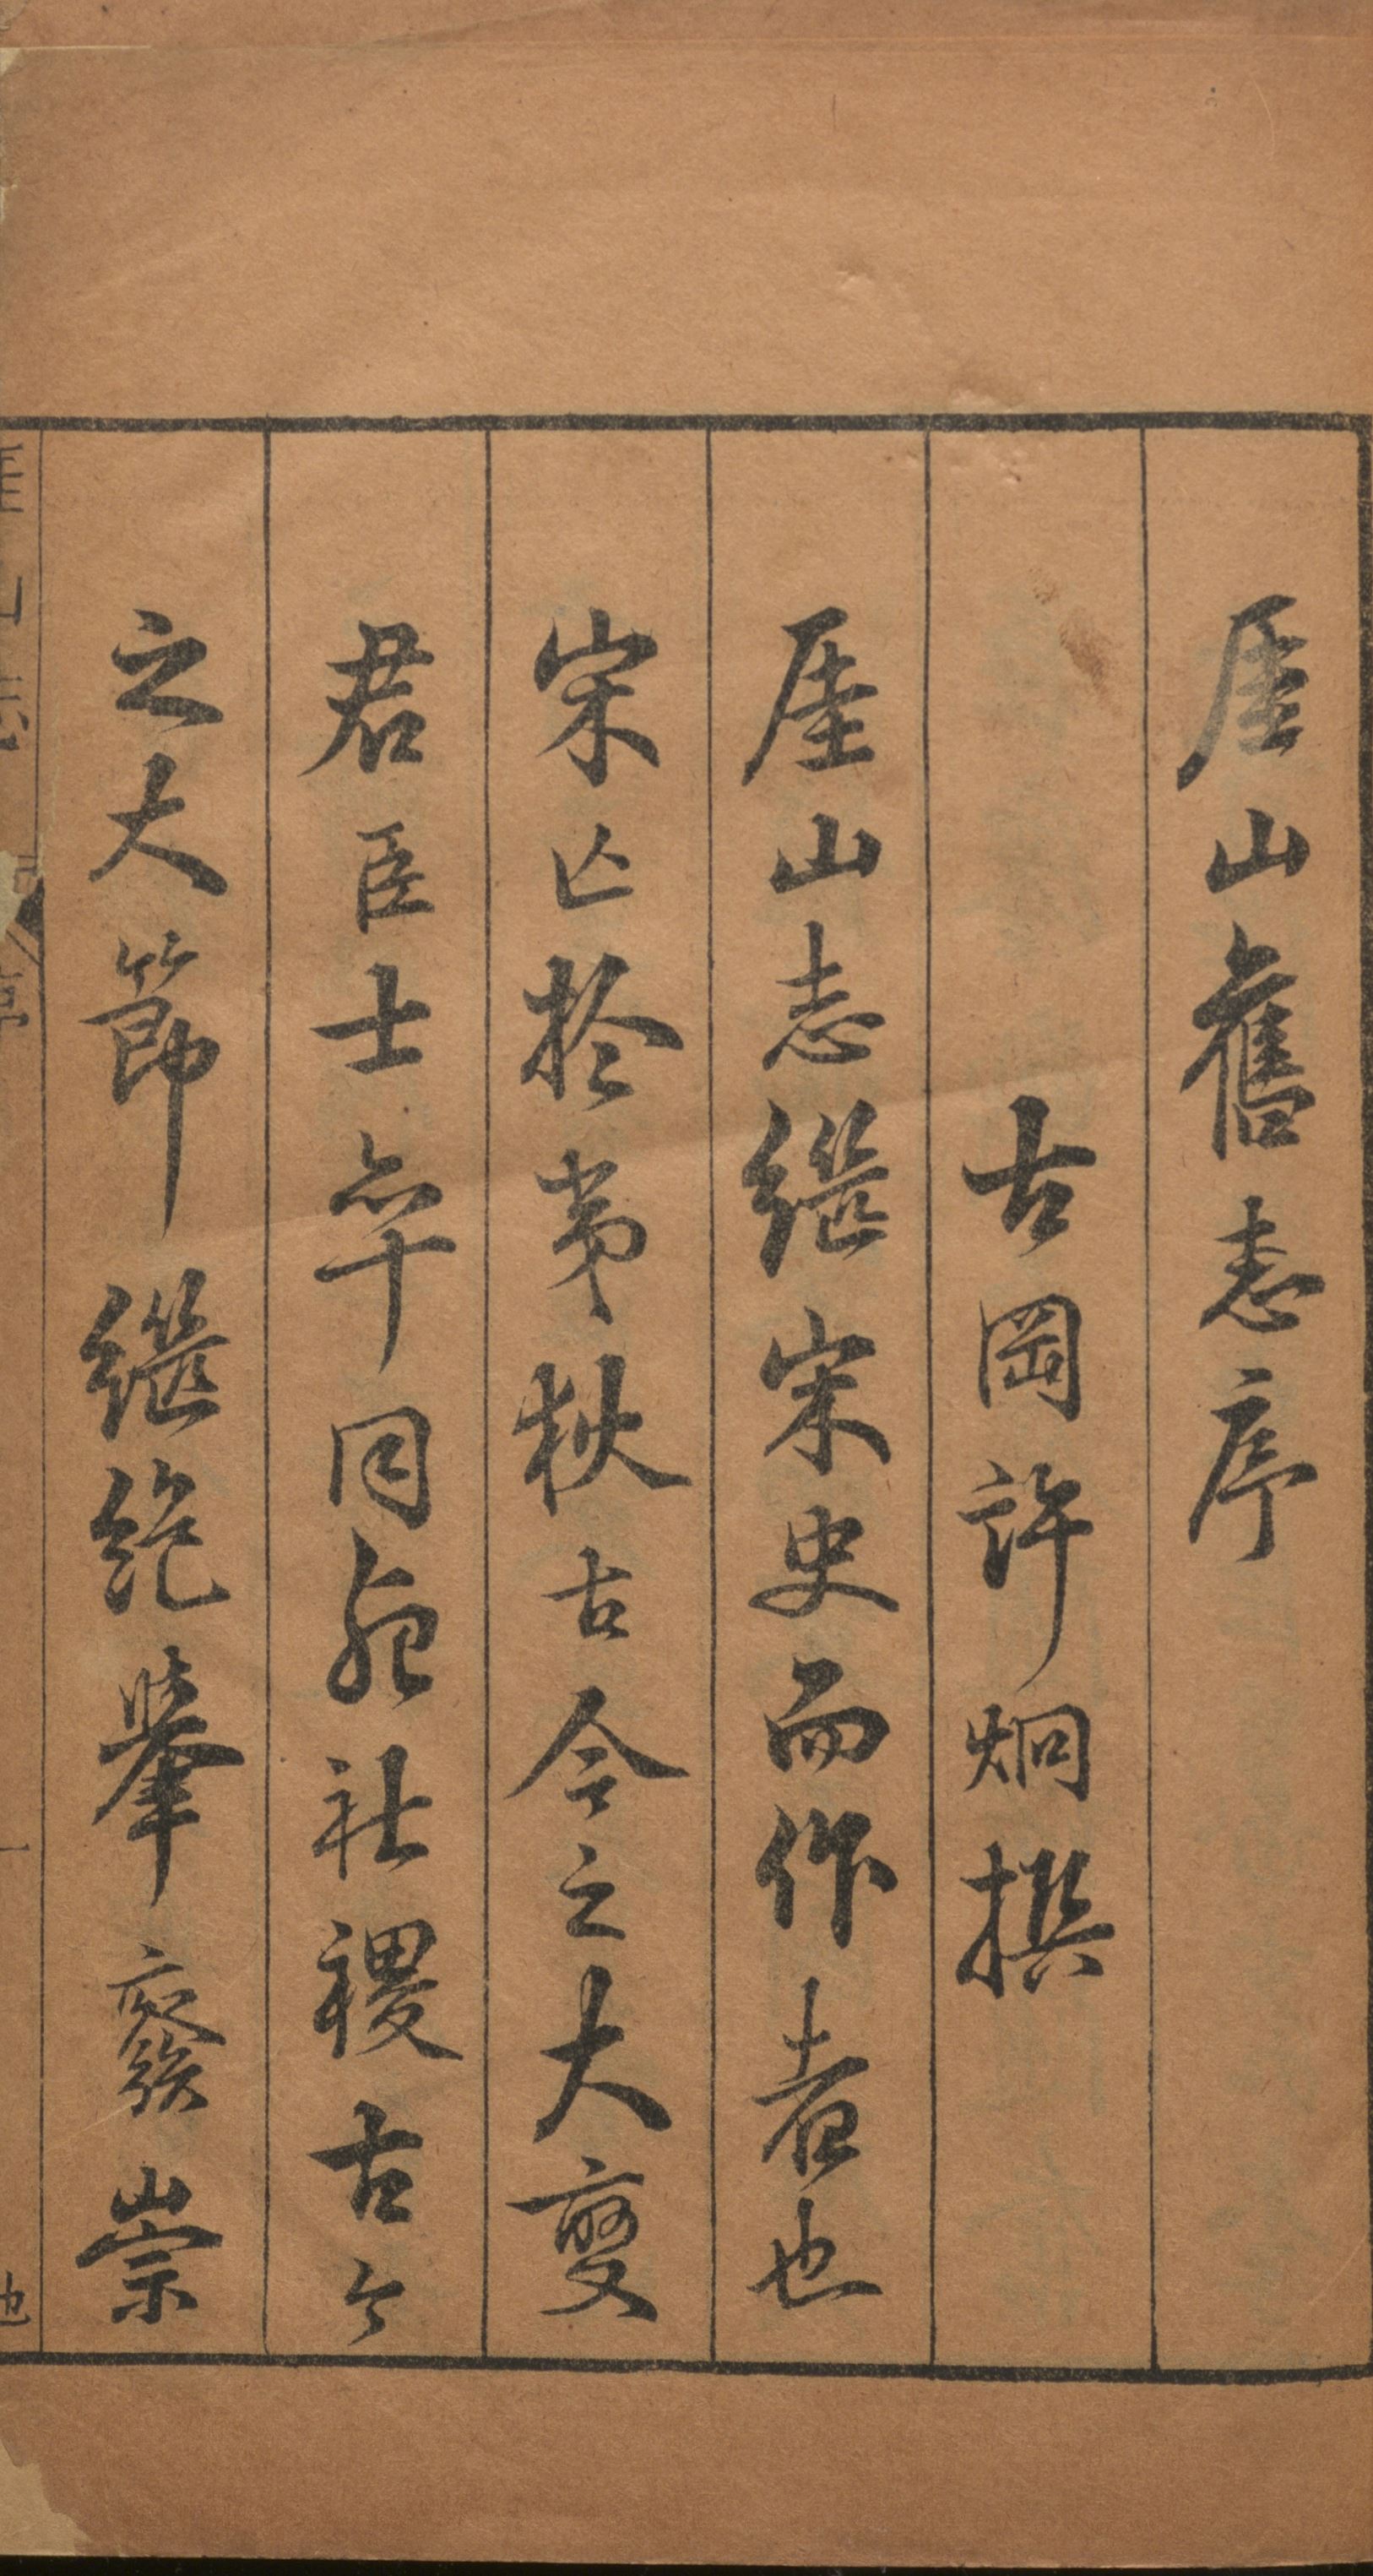 厓山舊志序
古岡許炯撰
厓山志繼宋史而作者也
宋亡於夷狄古今之大變
君臣士卒同死社稷古今
之大節繼絕舉廢崇